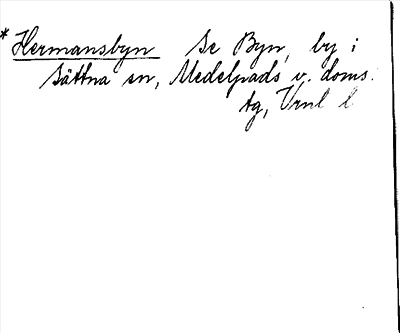 * Hermansbyn se Byn, by i
Sättna sn, Medelpads v. doms.
tg, Vrnl l